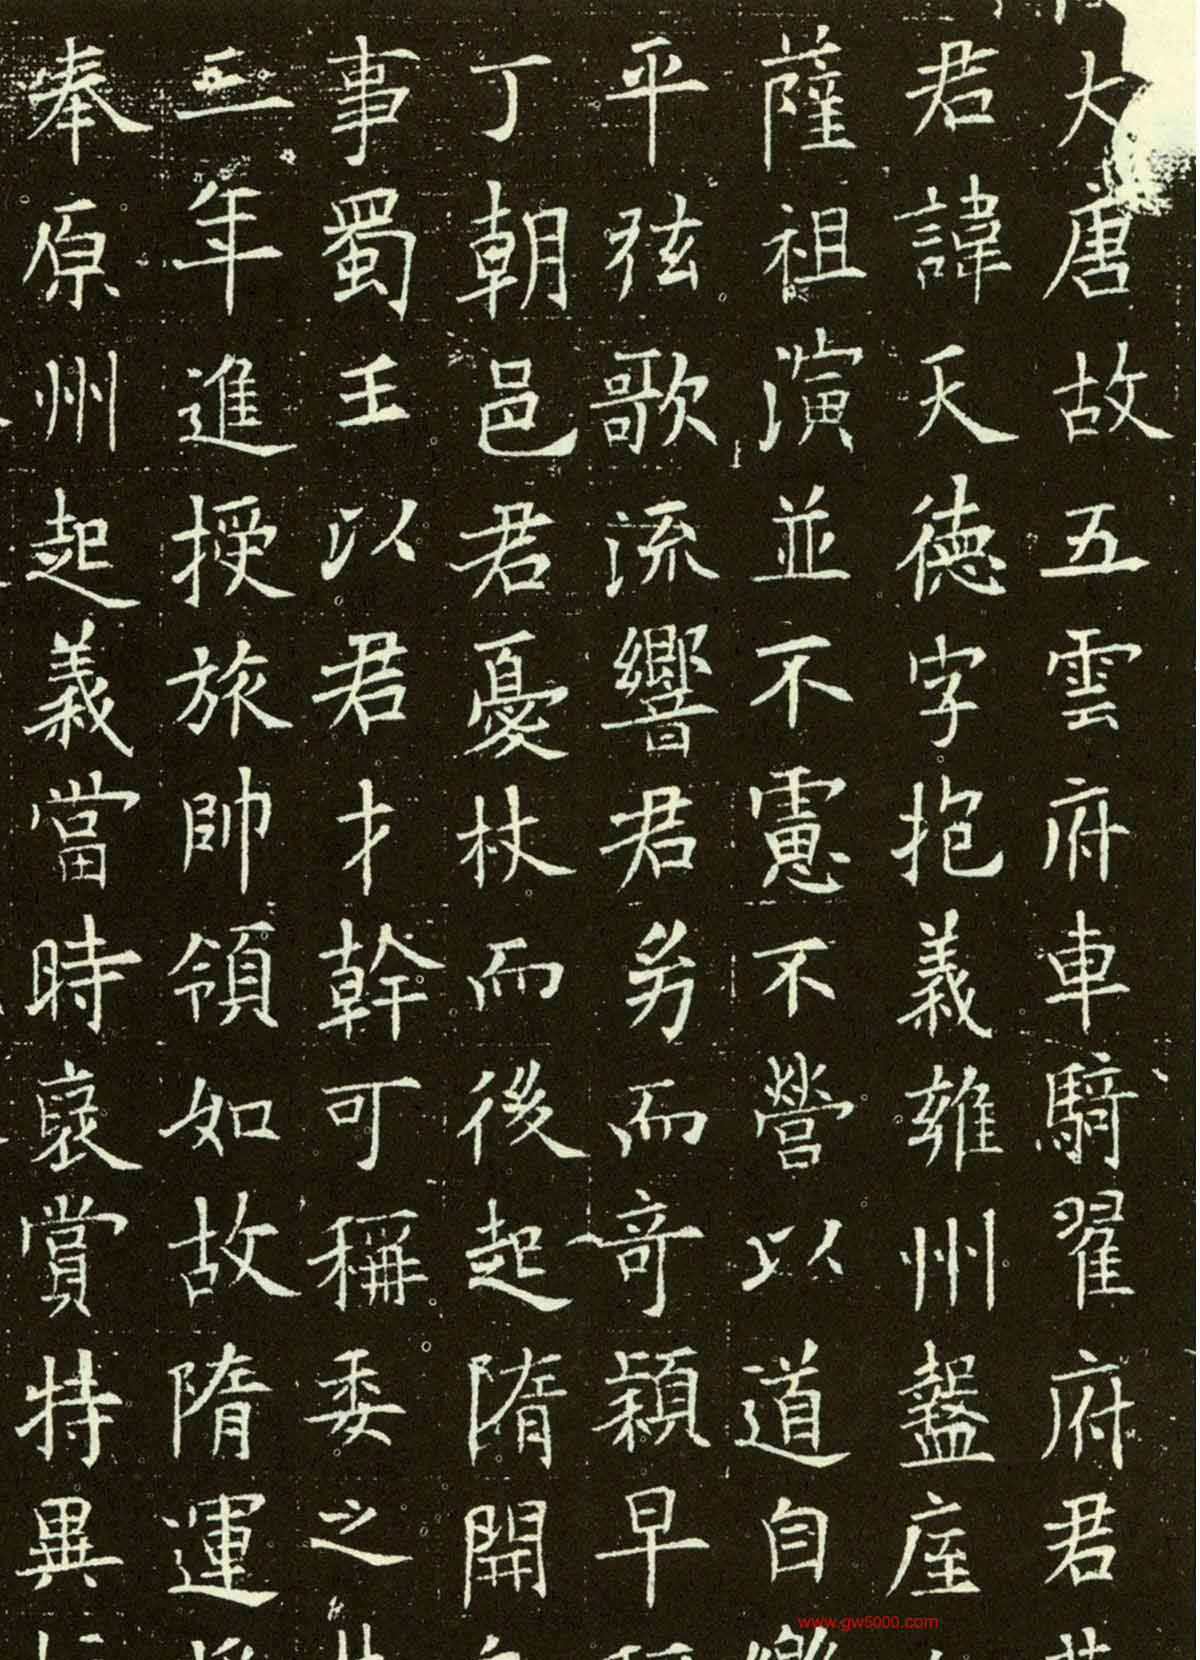 大唐故五雲府車騎翟府君
君諱天德字抱義雍州盩庢
薩祖演並不慮不營以道自樂
平弦歌流響君㓜而奇穎早
丁朝邑君憂杖而後起隋開
事蜀王以君才幹可稱委之
三年進授旅帥領如故隋運
奉原州起義當時裦賞特異
www.gw5000.com